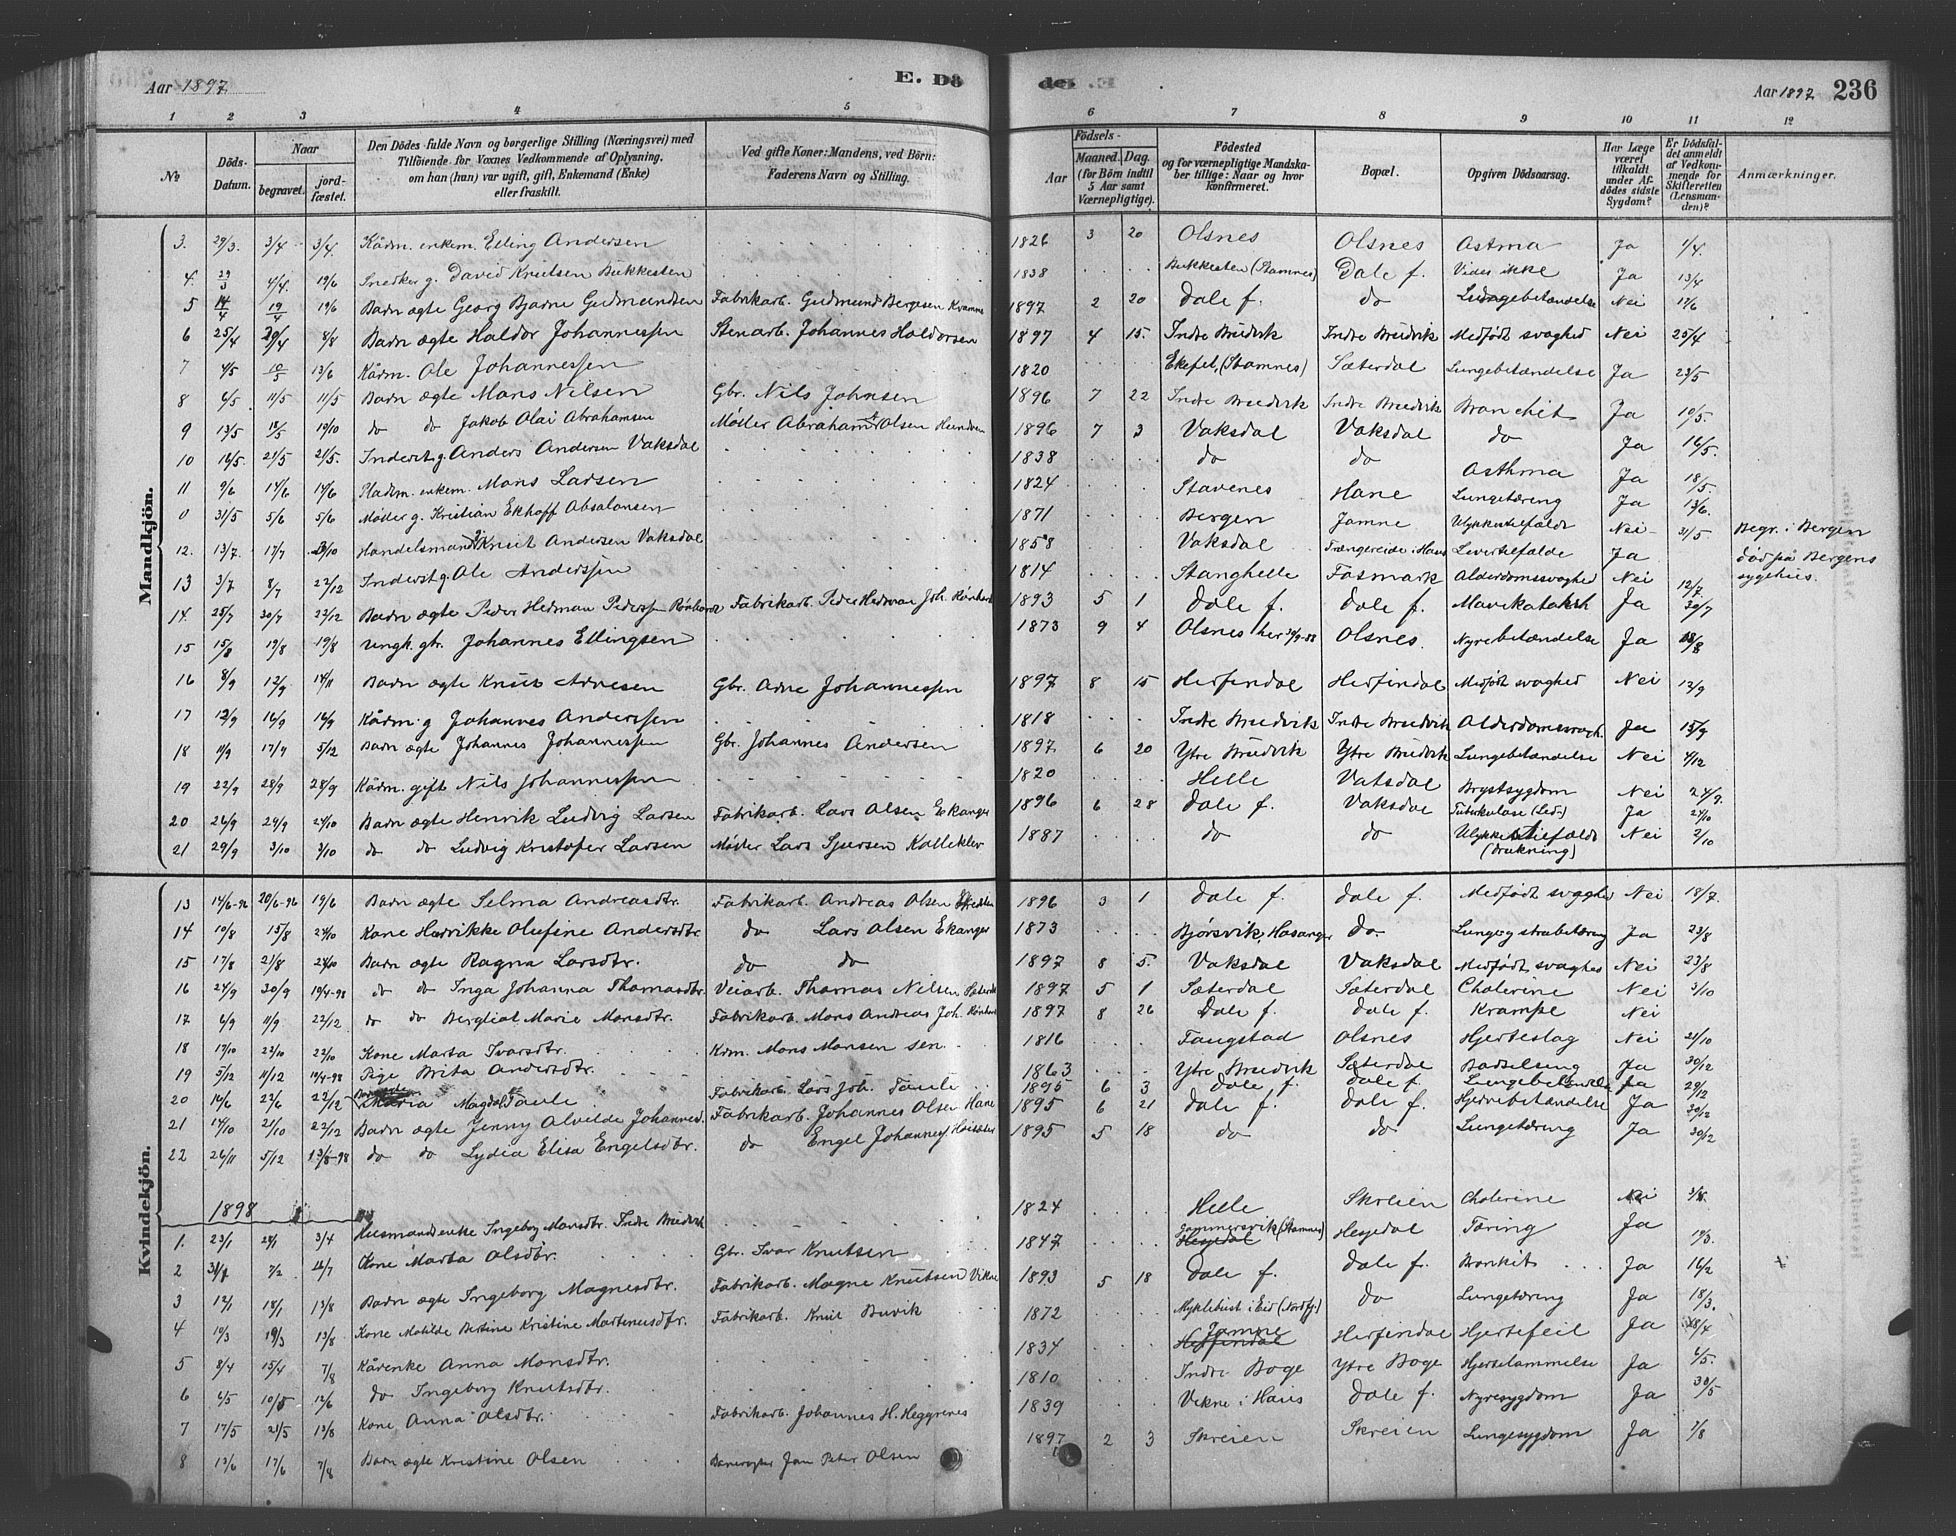 Aar 1897. E. Dö
den E. Aar 1897 236
1 2 3 4 5 6 7 8 9 10 11 12
No Döds-Datum. Naar begravet. jordfæstet. Den Dödes fulde Navn og borgerlige Stilling (Næringsvei) med Tilföiende for Voxnes Vedkommende af Oplysning, om han (hun) var ugift, gift, Enkemand (Enke) eller fraskilt. Ved gifte Koner: Mandens, ved Börn: Faderens Navn og Stilling. Aar Födsels- Maaned. Dag. (for Börn indtil 5 Aar samt Værnepligtige). Födested og for værnepligtige Mandskaber tillige: Naar og hvor konfirmeret. Bopæl. Opgiven Dödsaarsag. Har Læge været tilkaldt under Afdödes sidste Sygdom? Er Dödsfaldet anmeldt af Vedkommende for Skifteretten (Lensmanden)? Anmærkninger.
Mandkjön.
3. 29/3. 3/4 3/4. Kårm. enkem. Elling Andersen 1826 3 20 Olsnes Olsnes Astma Ja 1/4.
4. 29/3 4/4. 19/6 Snedker g. David Knutsen Bukkesten 1838 Bukkesten (Stamnes) Dale f. Vides ikke Ja 13/4
5 14/4 19/4 19/6 Barn ægte Georg Bjarne Gudmundsen Fabrikarb. Gudmund Bergesen Kvamme 1897 2 20 Dale f. do Lungebetændelse Nei 17/6
6 25/4 29/4 8/8 Barn ægte Haldor Johannessen Stenarb. Johannes Haldorsen 1897 4 15. Indre Bruvik Indre Bruvik Medfödt svaghed Nei 25/4
7 4/5 10/5 13/6 Kårm. Ole Johannessen 1820 (Stamnes) Sæterdal Lungebetændelse Ja 23/5
8 6/5 11/5 11/5 Barn ægte Mons Nilsen Gbr. Nils Johnsen 1896 7 22 Indre Bruvik Indre Bruvik Bronchit Ja 10/5.
9 13/5 18/5 19/10 do do Jakob Olai Abrahamsen Møller Abraham Olsen 1896 7 3 Vaksdal Vaksdal do Ja 16/5.
10 16/5. 21/5 21/5. Inderst g. Anders Andersen Vaksdal 1838 do do Asthma Ja 18/5.
11 9/6 14/6 14/6 Pladsm. enkem. Mons Larsen 1824 Stavenes Hane Lungetæring Ja 13/6.
0 31/5 5/6 5/6 Møller g. Kristian Ekhoff Absalonsen 1871 Bergen Jamne Ulykkestilfælde Nei 31/5 Begr. i Bergen
12. 13/7. 17/7 Handelsmand Knut Andersen Vaksdal 1858 Vaksdal Trængereide i Haus Levertilfælde Ja død på Bergens sygehus.
13 3/7 8/7 22/12 Inderst g. Ole Anderssen 1814 Stanghelle Fosmark Alderdomssvaghed Nei 12/7.
14. 25/7 30/7 22/12 Barn ægte Peder Herman Pederssen Fabrikarb. Peder Herman Joh. 1893 5 1 Dale f. Dale f. Mavekatarrh Ja 30/7
15 15/8 19/8 19/8 Ungk. gbr. Johannes Ellingsen 1873 9 4 Olsnes Olsnes. Nyrebetændelse Ja
16 8/9 12/9 14/11 Barn ægte Knut Arnesen Gbr. Arne Johannessen 1897 8 15 Herfindal Herfindal Medfödt svaghed Nei 12/9
17 12/9 16/9 16/9 Kårm. g Johannes Anderssen 1818 Indre Bruvik Indre Bruvik Ja 15/9
18 11/9 17/9 5/12 Barn ægte Johannes Johannessen Gbr. Johannes Andersen 1897 6 20 Ytre Bruvik Ytre Bruvik Lungebetændelse Nei 4/12
19 22/9 28/9 28/9 Kårm. gift Nils Johannessen 1820 Helle Vatsdal Brystsygdom Nei 24/9.
20 26/9 29/9 24/10 Barn ægte Henrik Ludvig Larsen Fabrikarb. Lars Olsen Ekanger 1896 6 28 Dale f. Vaksdal Tuberkulose (Led-) Ja 24/10
21 29/9 3/10 3/10 do do Ludvig Kristofer Larsen Møller Lars Sjursen Kalleklev 1887 do do Ulykkestilfælde (drukning) Nei 2/10
Kvindekjön.
13 14/6-96 20/6-96 19/6 Barn ægte Selma Andreasdtr. Fabrikarb. Andreas Olsen 1896 3 1 Dale f. Dale f. Medfödt svaghed Nei 18/7.
14 10/8 15/8 24/10 Kone Henrikke Olufine Andersdtr. do Lars Olsen Ekanger 1873 Bjørsvik, Hosanger Do. Ja 23/8
15 17/8 21/8 24/10 Barn ægte Ragna Larsdtr. do do 1897 8 5. Vaksdal Vaksdal Medfödt svaghed Nei 23/8
16 24/9 30/9 19/4-98 do do Inga Johanna Thomasdtr. Veiarb. Thomas Nilsen 1897 5 1 Sæterdal Sæterdal Cholerine Nei 3/10
17 6/9 11/9 22/12 do do Bergliot Marie Monsdtr. Fabrikarb. Mons Andreas Joh. 1897 8 26 Dale f. Dale f. Krampe Nei
18 17/10 22/10 22/10 Kone Marta Ivarsdtr. Krm. Mons Monsen sen. 1816 Fangstad Olsnes Hjerteslag Nei 21/10
19 5/12 11/12 19/4-98 Pige Brita Andersdtr. 1863 Ytre Bruvik Sæterdal Barselseng Ja 30/12
20 16/6 22/6 22/12 Maria Magdal Taule Fabrikarb. Lars Joh. Taule 1895 6 3 Dale f. Dale f Lungebetændelse Ja 29/12
21 14/10 21/10 22/12 Barn ægte Jenny Alvilde Johannesd. Fabrikarb. Johannes Olsen Hane 1895 6 21 Dale f. Dale f. Hjernebetændelse Ja 30/12
22 26/11 5/12 13/8-98 do do Lydia Elisa Engelsdtr. do Engel Johannes 1895 5 18 do do Lungetæring Ja 30/12
1898
1. 23/1 28/1 3/4 Husmandsenke Ingeborg Monsdtr. Indre Bruvik 1824 Helle Skreien Cholerine Nei 3/8.
2 7/2 Kone Marta Olsdtr. Gbr. Ivar Knutsen 1847 (Stamnes) Hesjedal Hesjedal Tæring Ja
3 12/1 18/1 13/8 Barn ægte Ingeborg Magnesdtr. Fabrikarb. Magne Knutsen Vikne 1893 5 18 Dale f. Dale f. Bronkit Ja 16/2
4 10/3 19/3 13/8 Kone Matilde Bertine Kristine Martinusdtr. Fabrikarb. Knut Buvik 1872 Myklebust i Eid (Nordfj.) do Lungetæring Ja 18/3.
5 8/4 15/4 7/8 Kårenke Anna Monsdtr. 1834 Jamne Herfindal Herfindal Hjertefeil Ja
6 4/5 10/5 12/6 do Ingeborg Knutsdtr. 1810 Indre Boge Ytre Boge Hjertelammelse Ja 6/5.
7 17/5 21/5 13/8 Kone Anna Olsdtr. Fabrikarb. Johannes H. Heggenes 1839 Vikne i Haus Dale f. Nyresygdom Ja 30/5
8 13/6 17/6 7/8 Barn ægte Kristine Olsen Banevogter Jan Peter Olsen 1897 2 3 Skreien Skreien Lungesygdom Ja 7/8